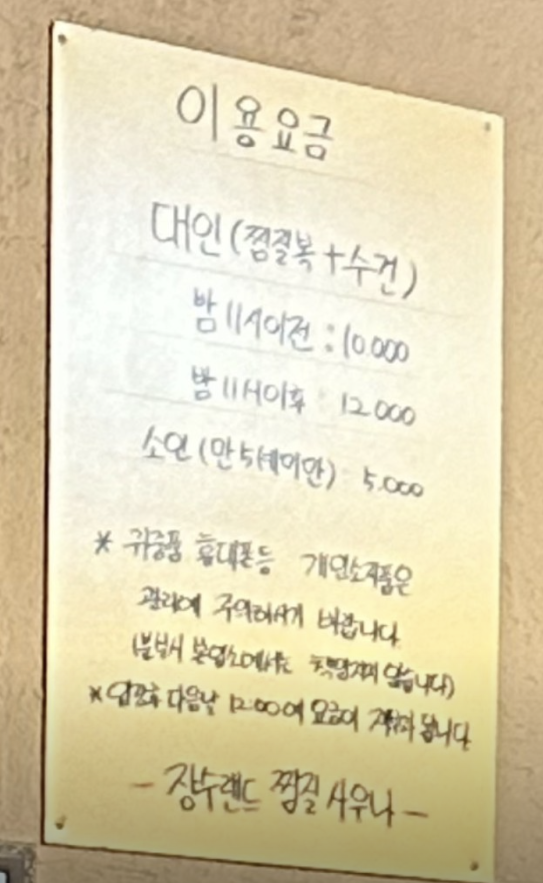 이용요금
대인(찜질복+수건)
밤 11시이전 : 10.000
밤 11시이후 12.000
소인(만 5세미만) 5.000
* 귀중품 휴대폰등 개인소지품은
관리에 주의하시기 바랍니다
(분실시 본업소에서는 책임지지 않습니다)
* 입장후 다음날 12:00에 요금이 됩니다
- 장수랜드 찜질 사우나 -